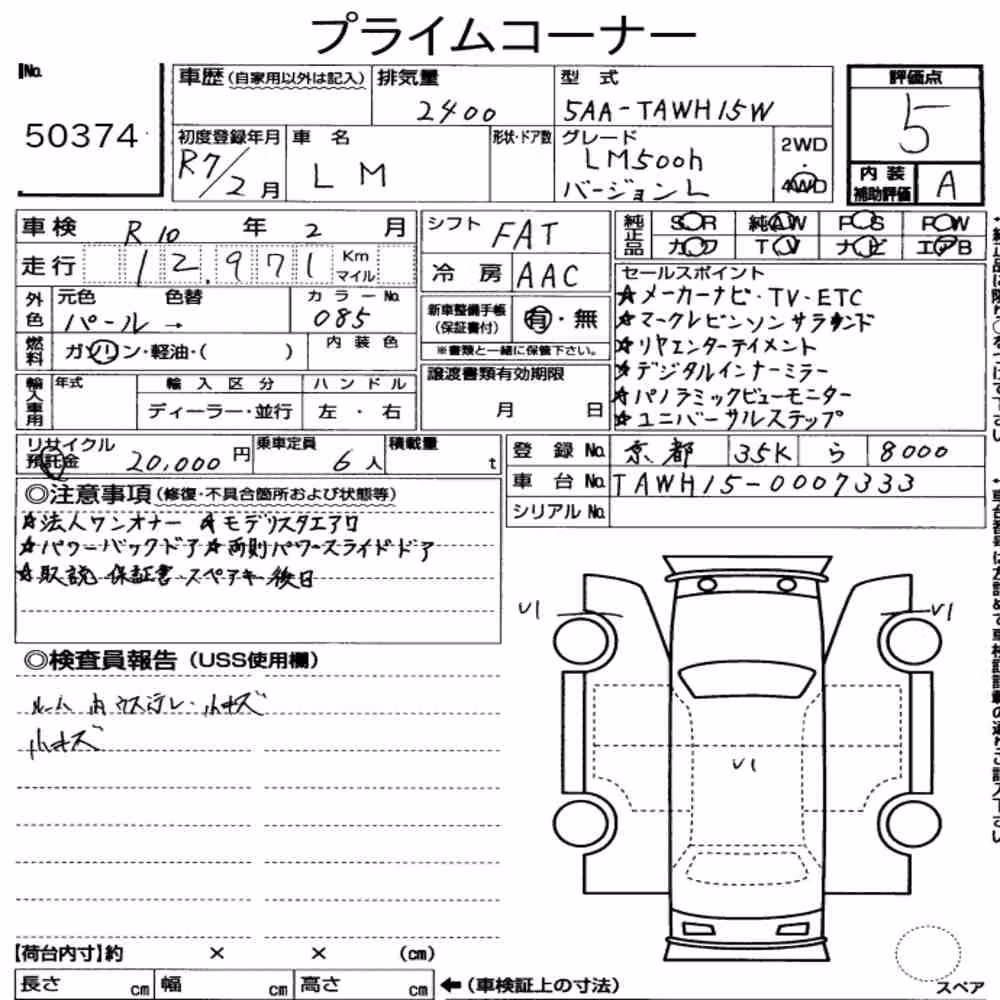 プライムコーナー
No.
50374
車歴（自家用以外は記入）
排気量
2400
型 式
5AA-TAWH15W
評価点
5
内装補助評価
A
初度登録年月
R7/2月
車 名
LM
形状・ドア数
グレード
LM500h
バージョンL
2WD
・
4WD
車検
R10年2月
走行
12,971
Km
マイル
シフト
FAT
冷 房
AAC
純正品
SR 純AW PS PW
カワ TV ナビ エアB
外色
元色
色替
パール→
カラーNo.
085
燃料
ガソリン・軽油・（ ）
内 装 色
新車整備手帳
（保証書付）
有・無
※書類と一緒に保管下さい。
セールスポイント
☆メーカーナビ・TV・ETC
☆マークレビンソンサラウンド
☆リヤエンターテイメント
☆デジタルインナーミラー
☆パノラミックビューモニター
☆ユニバーサルステップ
輸入車用
年式
輸入区分
ディーラー・並行
ハンドル
左・右
譲渡書類有効期限
月 日
リサイクル
預託金
20,000円
乗車定員
6人
積載量
t
登 録 No.
京都 35K ら 8000
車 台 No.
TAWH15-0007333
シリアル No.
◎注意事項（修復・不具合箇所および状態等）
☆法人ワンオナー ☆モデリスタエアロ
☆パワーバックドア☆両則パワースライドドア
☆取説 保証書 スペアキー後日
◎検査員報告（USS使用欄）
ルーム内ウス汚レ・小キズ
小キズ
U1
U1
U1
【荷台内寸】約 × × （cm）
長さ cm 幅 cm 高さ cm
←（車検証上の寸法）
スペア